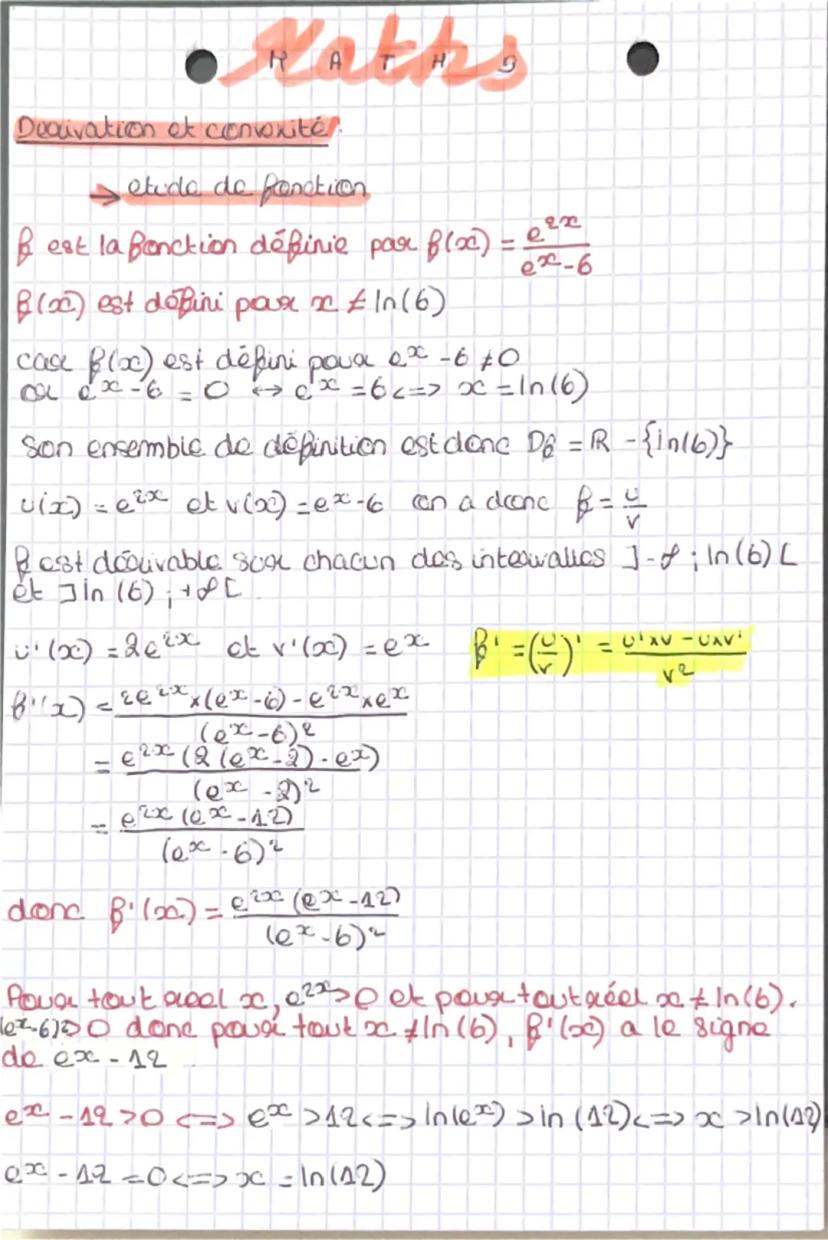 Maths
M A T H S
Dérivation et convexité.
→ etude de fonction
f est la fonction définie par f(x) = e^2x / (e^x - 6)
f(x) est défini pour x ≠ ln(6)
car f(x) est défini pour e^x - 6 ≠ 0
or e^x - 6 = 0 ↔ e^x = 6 <=> x = ln(6)
Son ensemble de définition est donc Df = ℝ - {ln(6)}
u(x) = e^2x et v(x) = e^x - 6 on a donc f = u/v
f est dérivable sur chacun des intervalles ]-∞ ; ln(6)[
et ]ln(6) ; +∞[
u'(x) = 2e^2x et v'(x) = e^x f' = (u/v)' = (u'×v - u×v') / v^2
f'(x) = (2e^2x × (e^x - 6) - e^2x × e^x) / (e^x - 6)^2
= e^2x (2(e^x - 2) - e^x) / (e^x - 2)^2
= e^2x (e^x - 12) / (e^x - 6)^2
donc f'(x) = e^2x (e^x - 12) / (e^x - 6)^2
Pour tout réel x, e^2x > 0 et pour tout réel x ≠ ln(6).
(e^x - 6)^2 > 0 donc pour tout x ≠ ln(6), f'(x) a le signe
de ex - 12
e^x - 12 > 0 <=> e^x > 12 <=> ln(e^x) > ln(12) <=> x > ln(12)
e^x - 12 = 0 <=> x = ln(12)